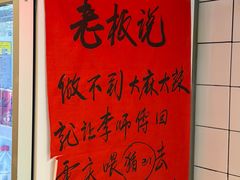 老板说
做不到大麻大辣
就让李师傅回
家去喂猪去